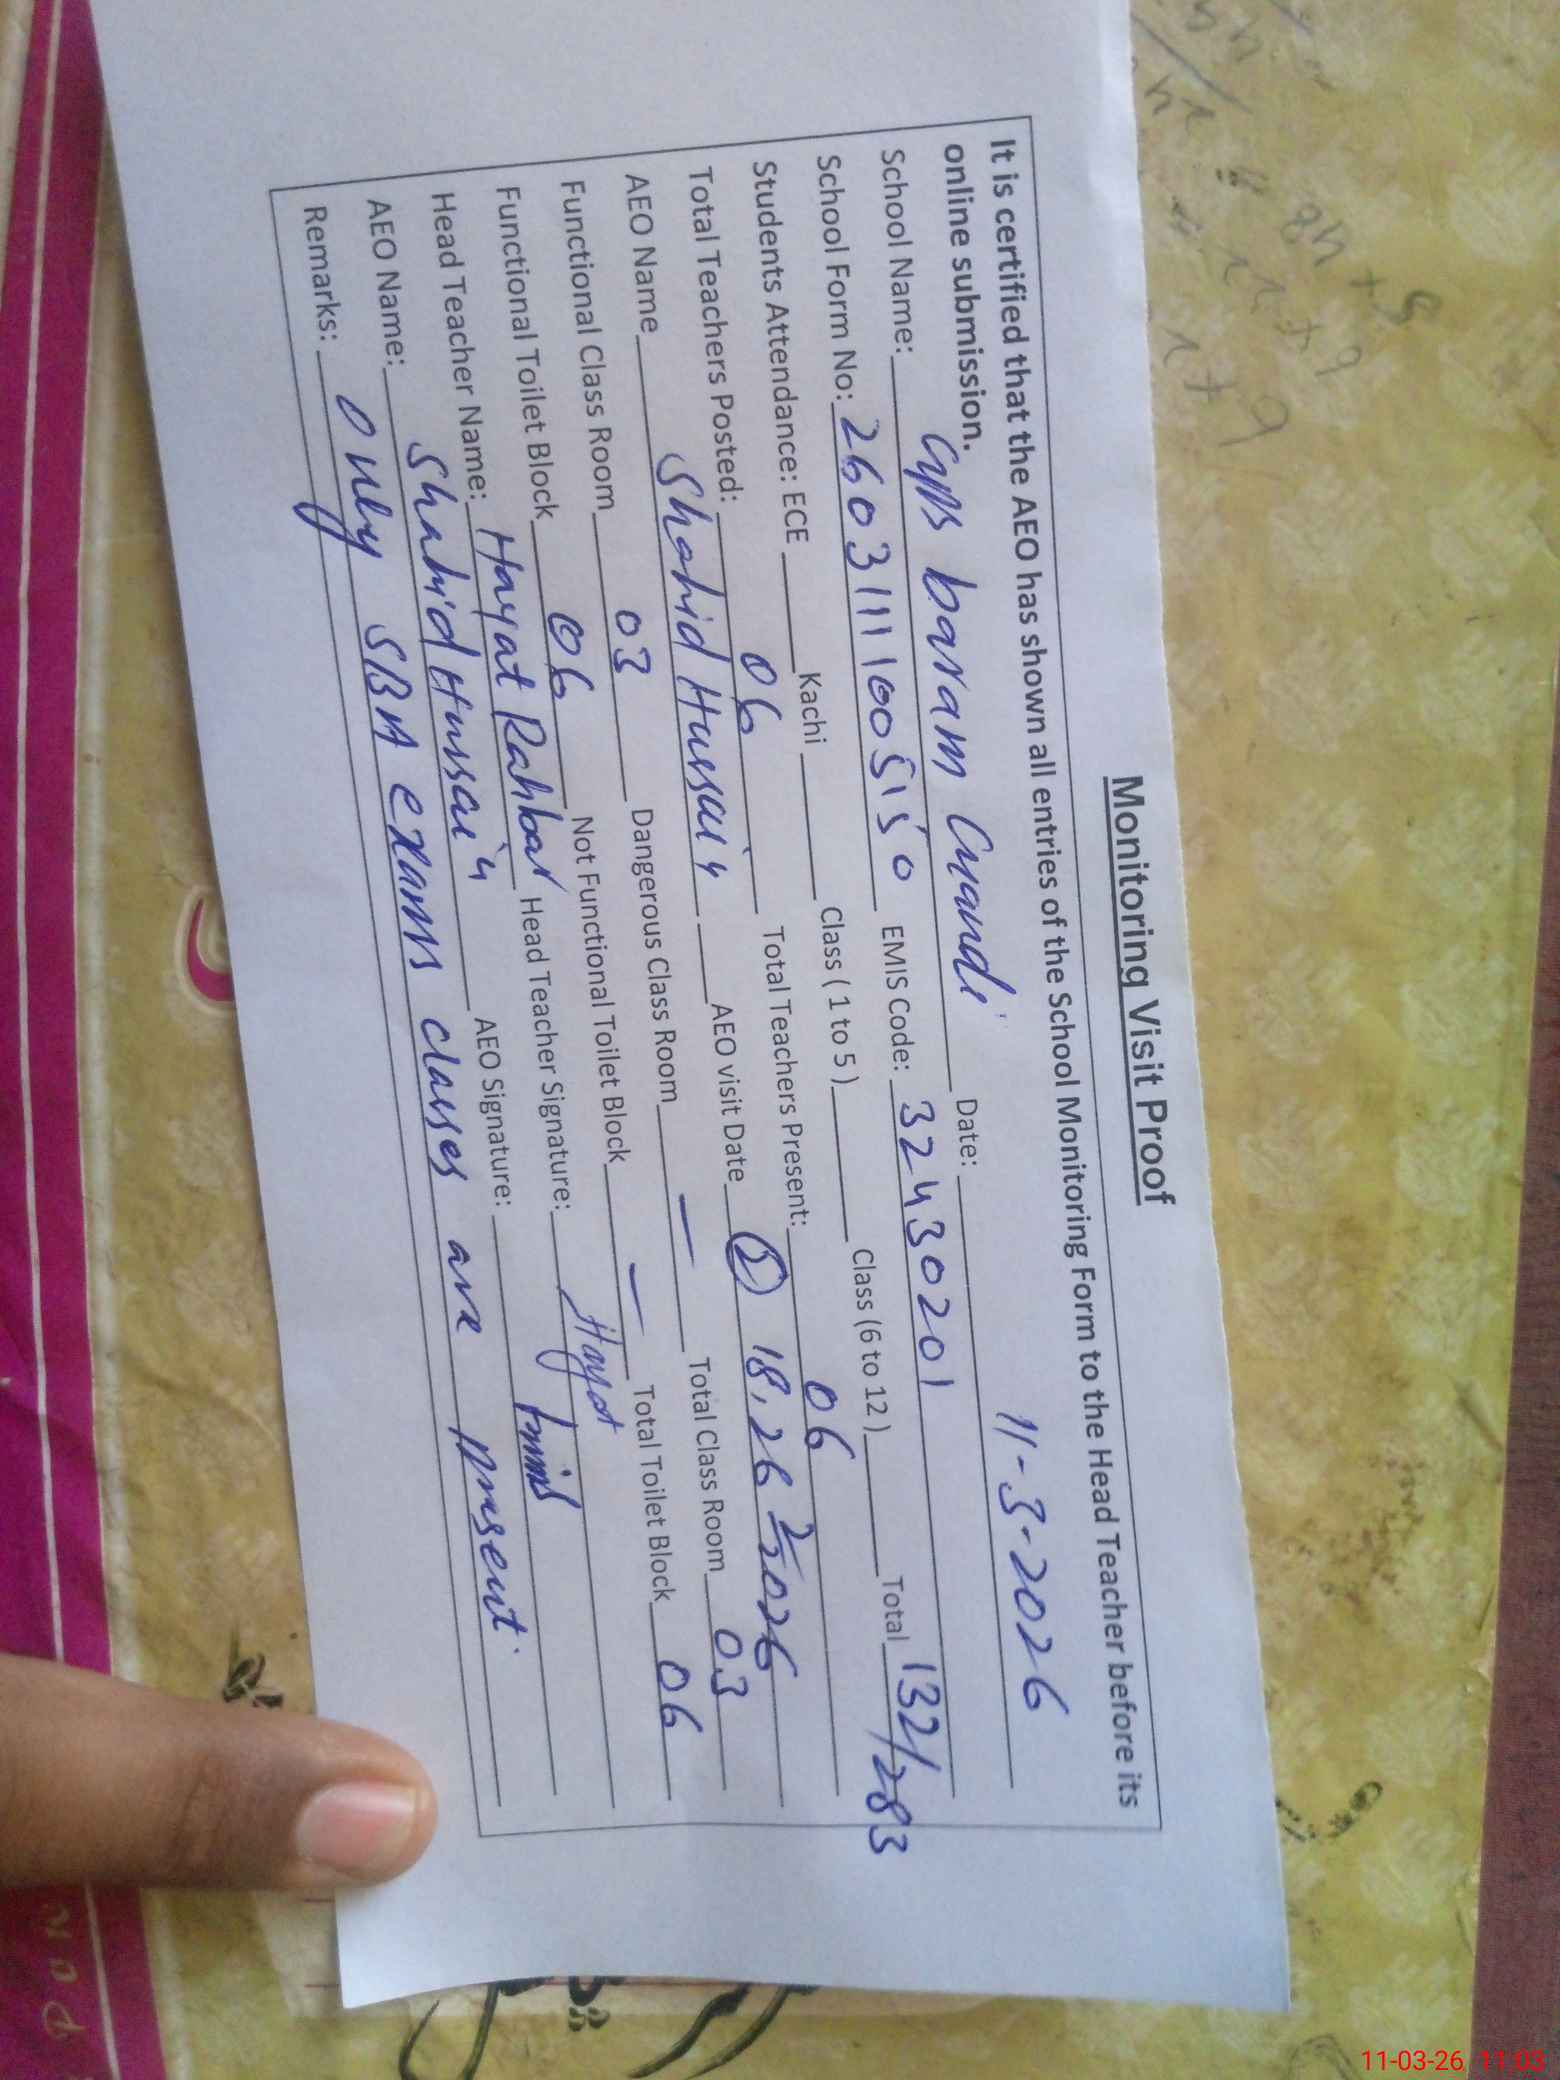 Monitoring Visit Proof
It is certified that the AEO has shown all entries of the School Monitoring Form to the Head Teacher before its
online submission.
School Name: GPS baram Chandi Date: 11-3-2026
School Form No: 26031111005150 EMIS Code: 32430201
Students Attendance: ECE Kachi Class ( 1 to 5 ) Class (6 to 12 ) Total 132/283
Total Teachers Posted: 06 Total Teachers Present: 06
AEO Name Shahid Hussain AEO visit Date 18, 26 2/2026
Functional Class Room 03 Dangerous Class Room — Total Class Room 03
Functional Toilet Block 06 Not Functional Toilet Block — Total Toilet Block 06
Head Teacher Name: Hayat Rahbar Head Teacher Signature: Hayat
AEO Name: Shahid Hussain AEO Signature:
Remarks: Only SBA exams classes are present.
11-03-26 11:03